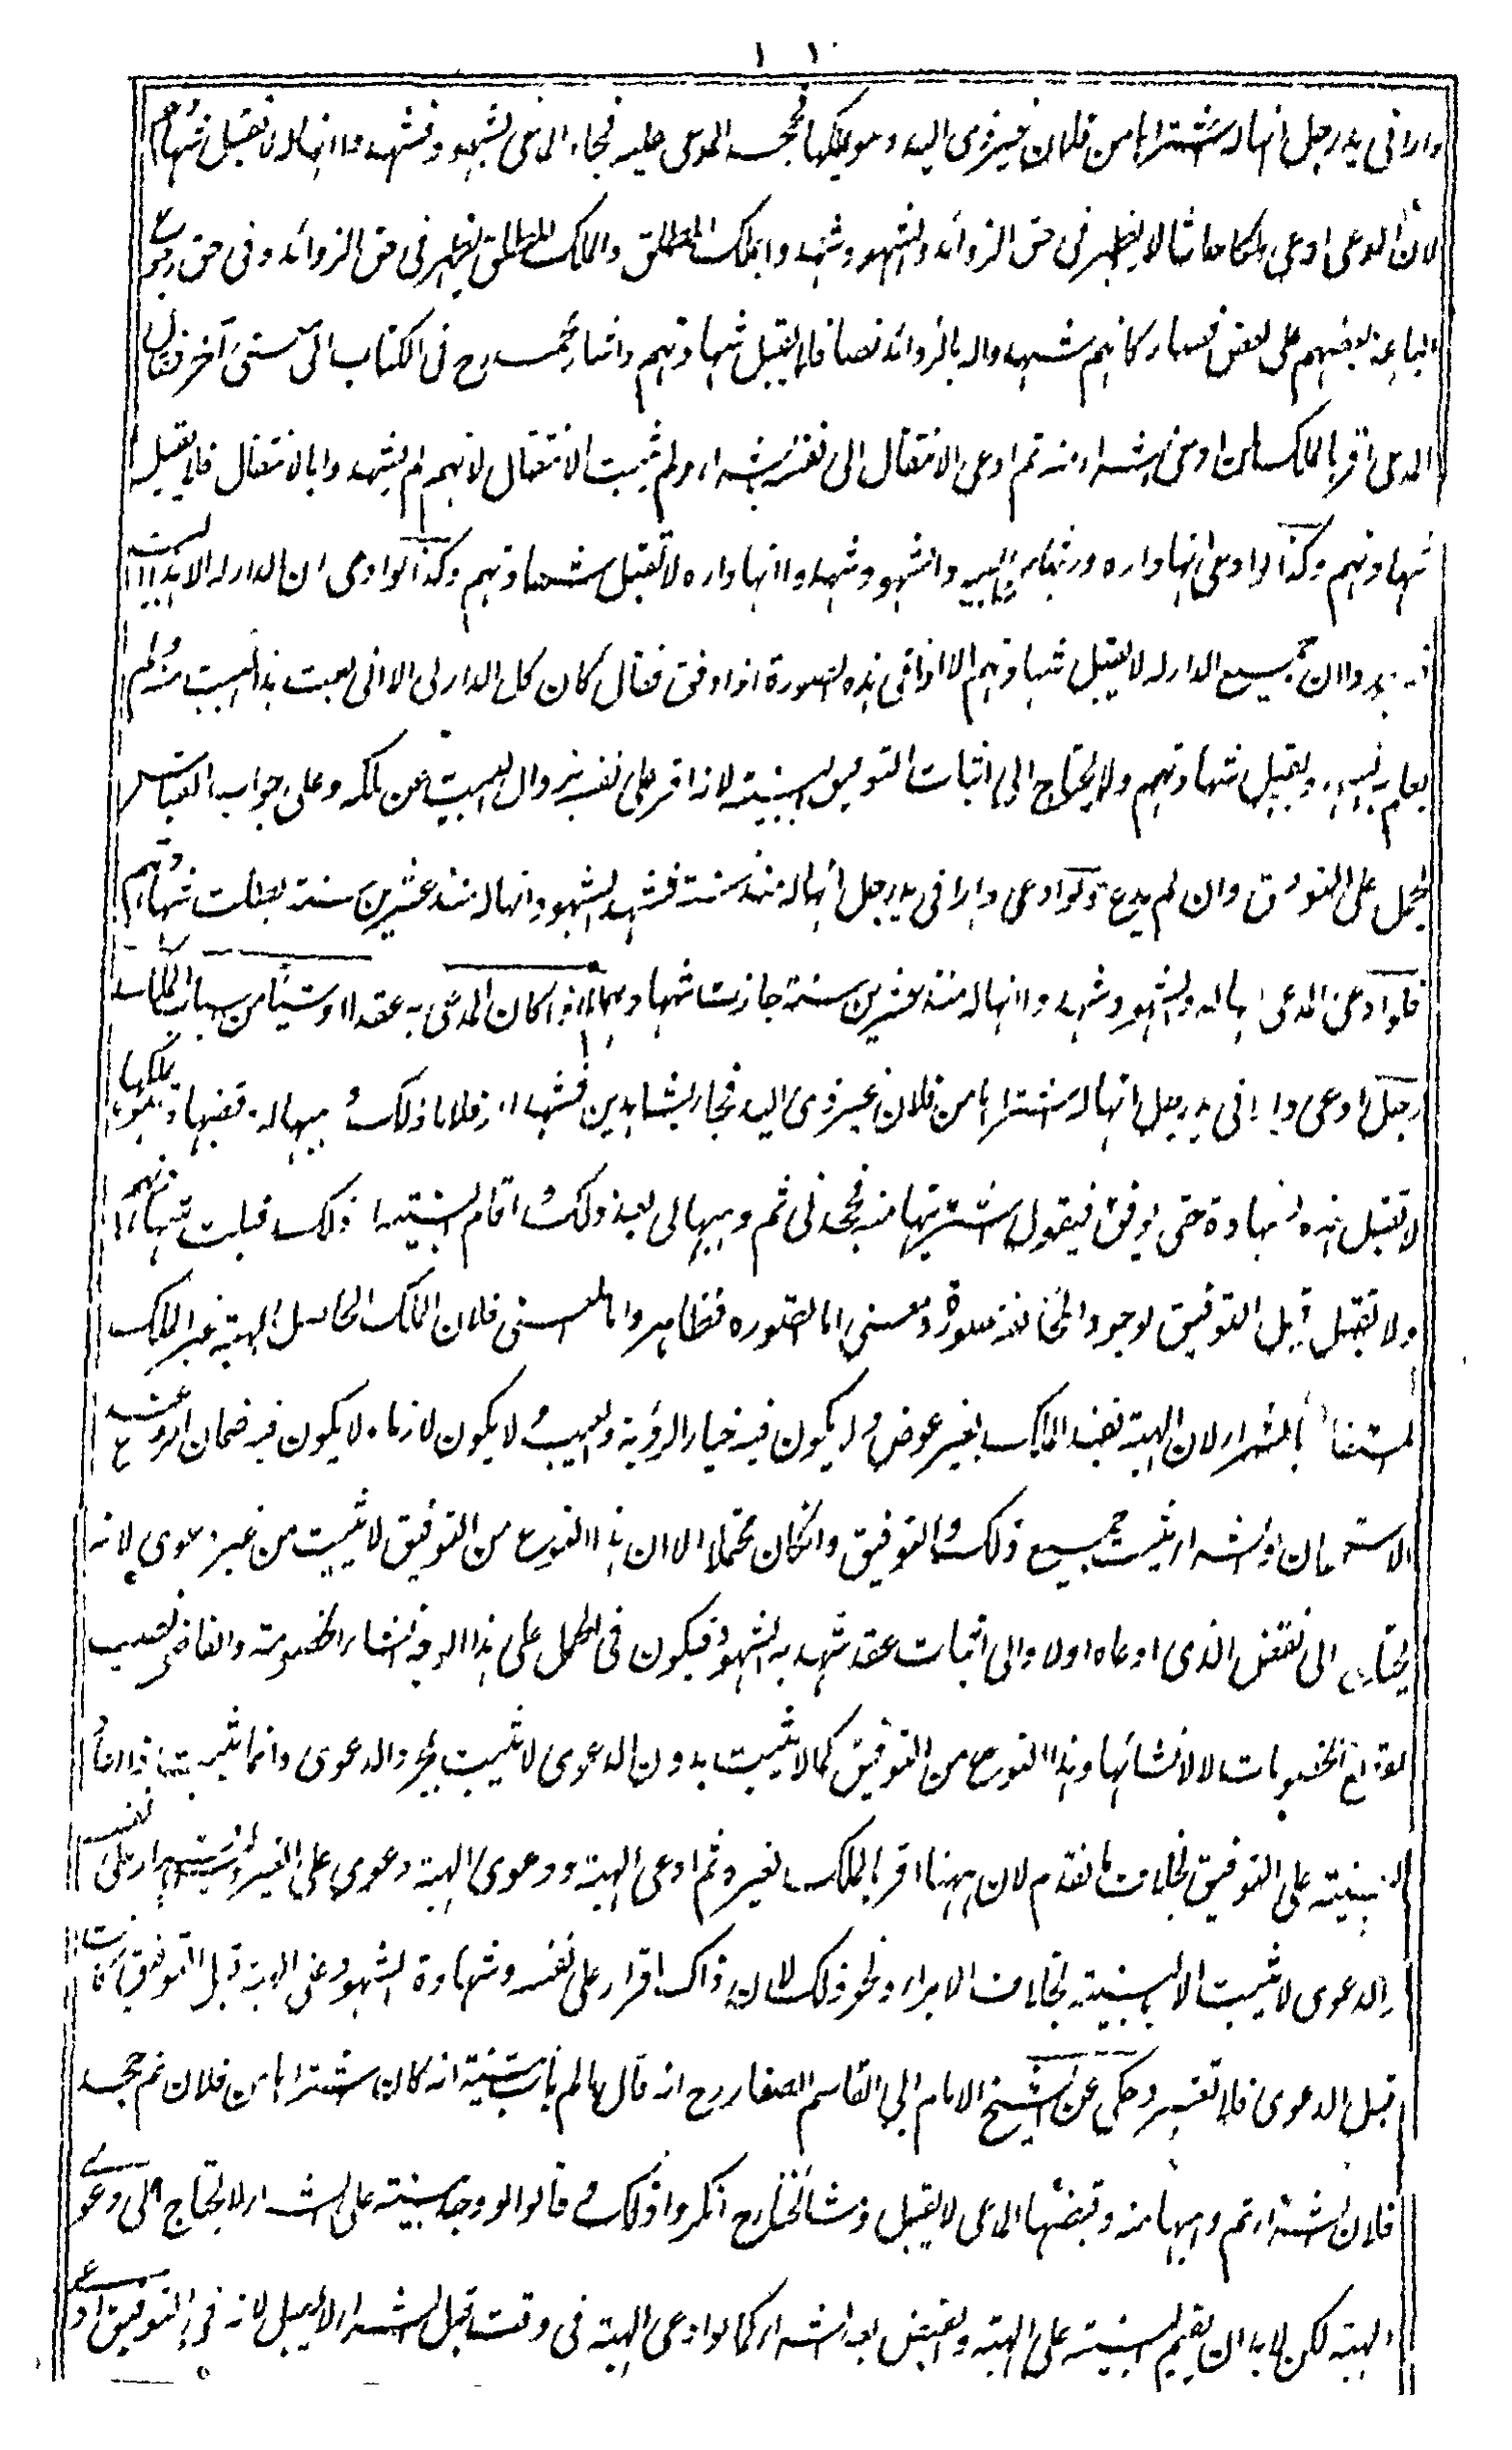 دارا فی ید رجل انها له اشتراها من فلان غیر ذی الید وهو یملکها فجحد المدعی علیه فجاء المدعی بشهود فشهدوا انها له لا تقبل شهادتهم
لان المدعی ادعی ملکا حادثا لا یظهر فی حق الزوائد والشهود شهدوا بالملک المطلق والملک المطلق یظهر فی حق الزوائد وفی حق رجوع
الباعة بعضهم علی بعض فصار کانهم شهدوا له بالزوائد نصا فلا یقبل شهادتهم واشار محمد رح فی الکتاب الی معنی آخر فقال
المدعی اقر بالملک لمن ادعی الشراء منه ثم ادعی الانتقال الی نفسه بالشراء ولم یثبت الانتقال لانهم لم یشهدوا بالانتقال فلا یقبل
شهادتهم وکذا لو ادعی انها داره ورثها من ابیه والشهود شهدوا انها داره لا تقبل شهادتهم وکذا لو ادعی ان الدار له الا هذا البیت
فشهدوا ان جمیع الدار له لا یقبل شهادتهم الا اذا فی هذه الصورة اذا وفق فقال کان کل الدار لی الا انی بعت هذا البیت منه ولم
یعلم به الشهود ویقبل شهادتهم ولا یحتاج الی اثبات التوفیق بالبینة لانه اقر علی نفسه بزوال البیت عن ملکه وعلی جواب القیاس
یحمل علی التوفیق وان لم یدع ولو ادعی دارا فی ید رجل انها له منذ سنة فشهد الشهود انها له منذ عشرین سنة بطلت شهادتهم
فلو ادعی المدعی انها له والشهود شهدوا انها له منذ عشرین سنة جازت شهادتهما اذا کان المدعی به عقدا او شیئا من اسباب الملک
رجل ادعی دارا فی ید رجل انها له اشتراها من فلان غیر ذی الید فجاء بشاهدین فشهدا ان فلانا ذلک وهبها له وقبضها وهو یملکها
لا تقبل هذه الشهادة حتی یوفق فیقول اشتریتها منه فجحدنی ثم وهبها لی بعد ذلک واقام البینة علی ذلک قبلت شهادتهم
ولا تقبل قبل التوفیق لوجود المخالفة صورة ومعنی اما الصورة فظاهر واما المعنی فلان الملک الحاصل بالهبة غیر الملک
المستفاد بالشراء لان الهبة تفید الملک بغیر عوض ولا یکون فیه خیار الرؤیة والعیب ولا یکون لازما ولا یکون فیه ضمان الرجوع عند
الاستحقاق والشراء یثبت جمیع ذلک والتوفیق وان کان محتملا الا ان هذا النوع من التوفیق لا یثبت من غیر دعوی لانه
یحتاج الی نقض الذی ادعاه اولا والی اثبات عقد شهد به الشهود فیکون فی الحمل علی هذا الوجه انشاء الخصومة والقاضی نصب
لقطع الخصومات لا لانشائها وهذا النوع من التوفیق کما لا یثبت بدون الدعوی لا یثبت بمجرد الدعوی وانما یثبت اذا اقام
البینة علی التوفیق بخلاف ما تقدم لان ههنا اقر بالملک لغیره ثم ادعی الهبة ودعوی الهبة دعوی علی الغیر ولیست باقرار علی نفسه
والدعوی لا تثبت الا بالبینة بخلاف الابراء ونحو ذلک لان ذاک اقرار علی نفسه وشهادة الشهود علی الهبة قبل التوفیق کانت
قبل الدعوی فلا تعتبر وحکی عن الشیخ الامام ابی القاسم الصفار رح انه قال ما لم یأت ببینة انه کان اشتراها من فلان ثم جحد
فلان الشراء ثم وهبها منه وقبضها المدعی لا یقبل ومشائخنا رح انکروا ذلک وقالوا لو وجد بینة علی الشراء لا یحتاج الی دعوی
الهبة لکن لا بد ان یقیم البینة علی الهبة والقبض بعد الشراء کما لو ادعی الهبة فی وقت قبل الشراء لا یقبل لانه فی التوفیق ادعی